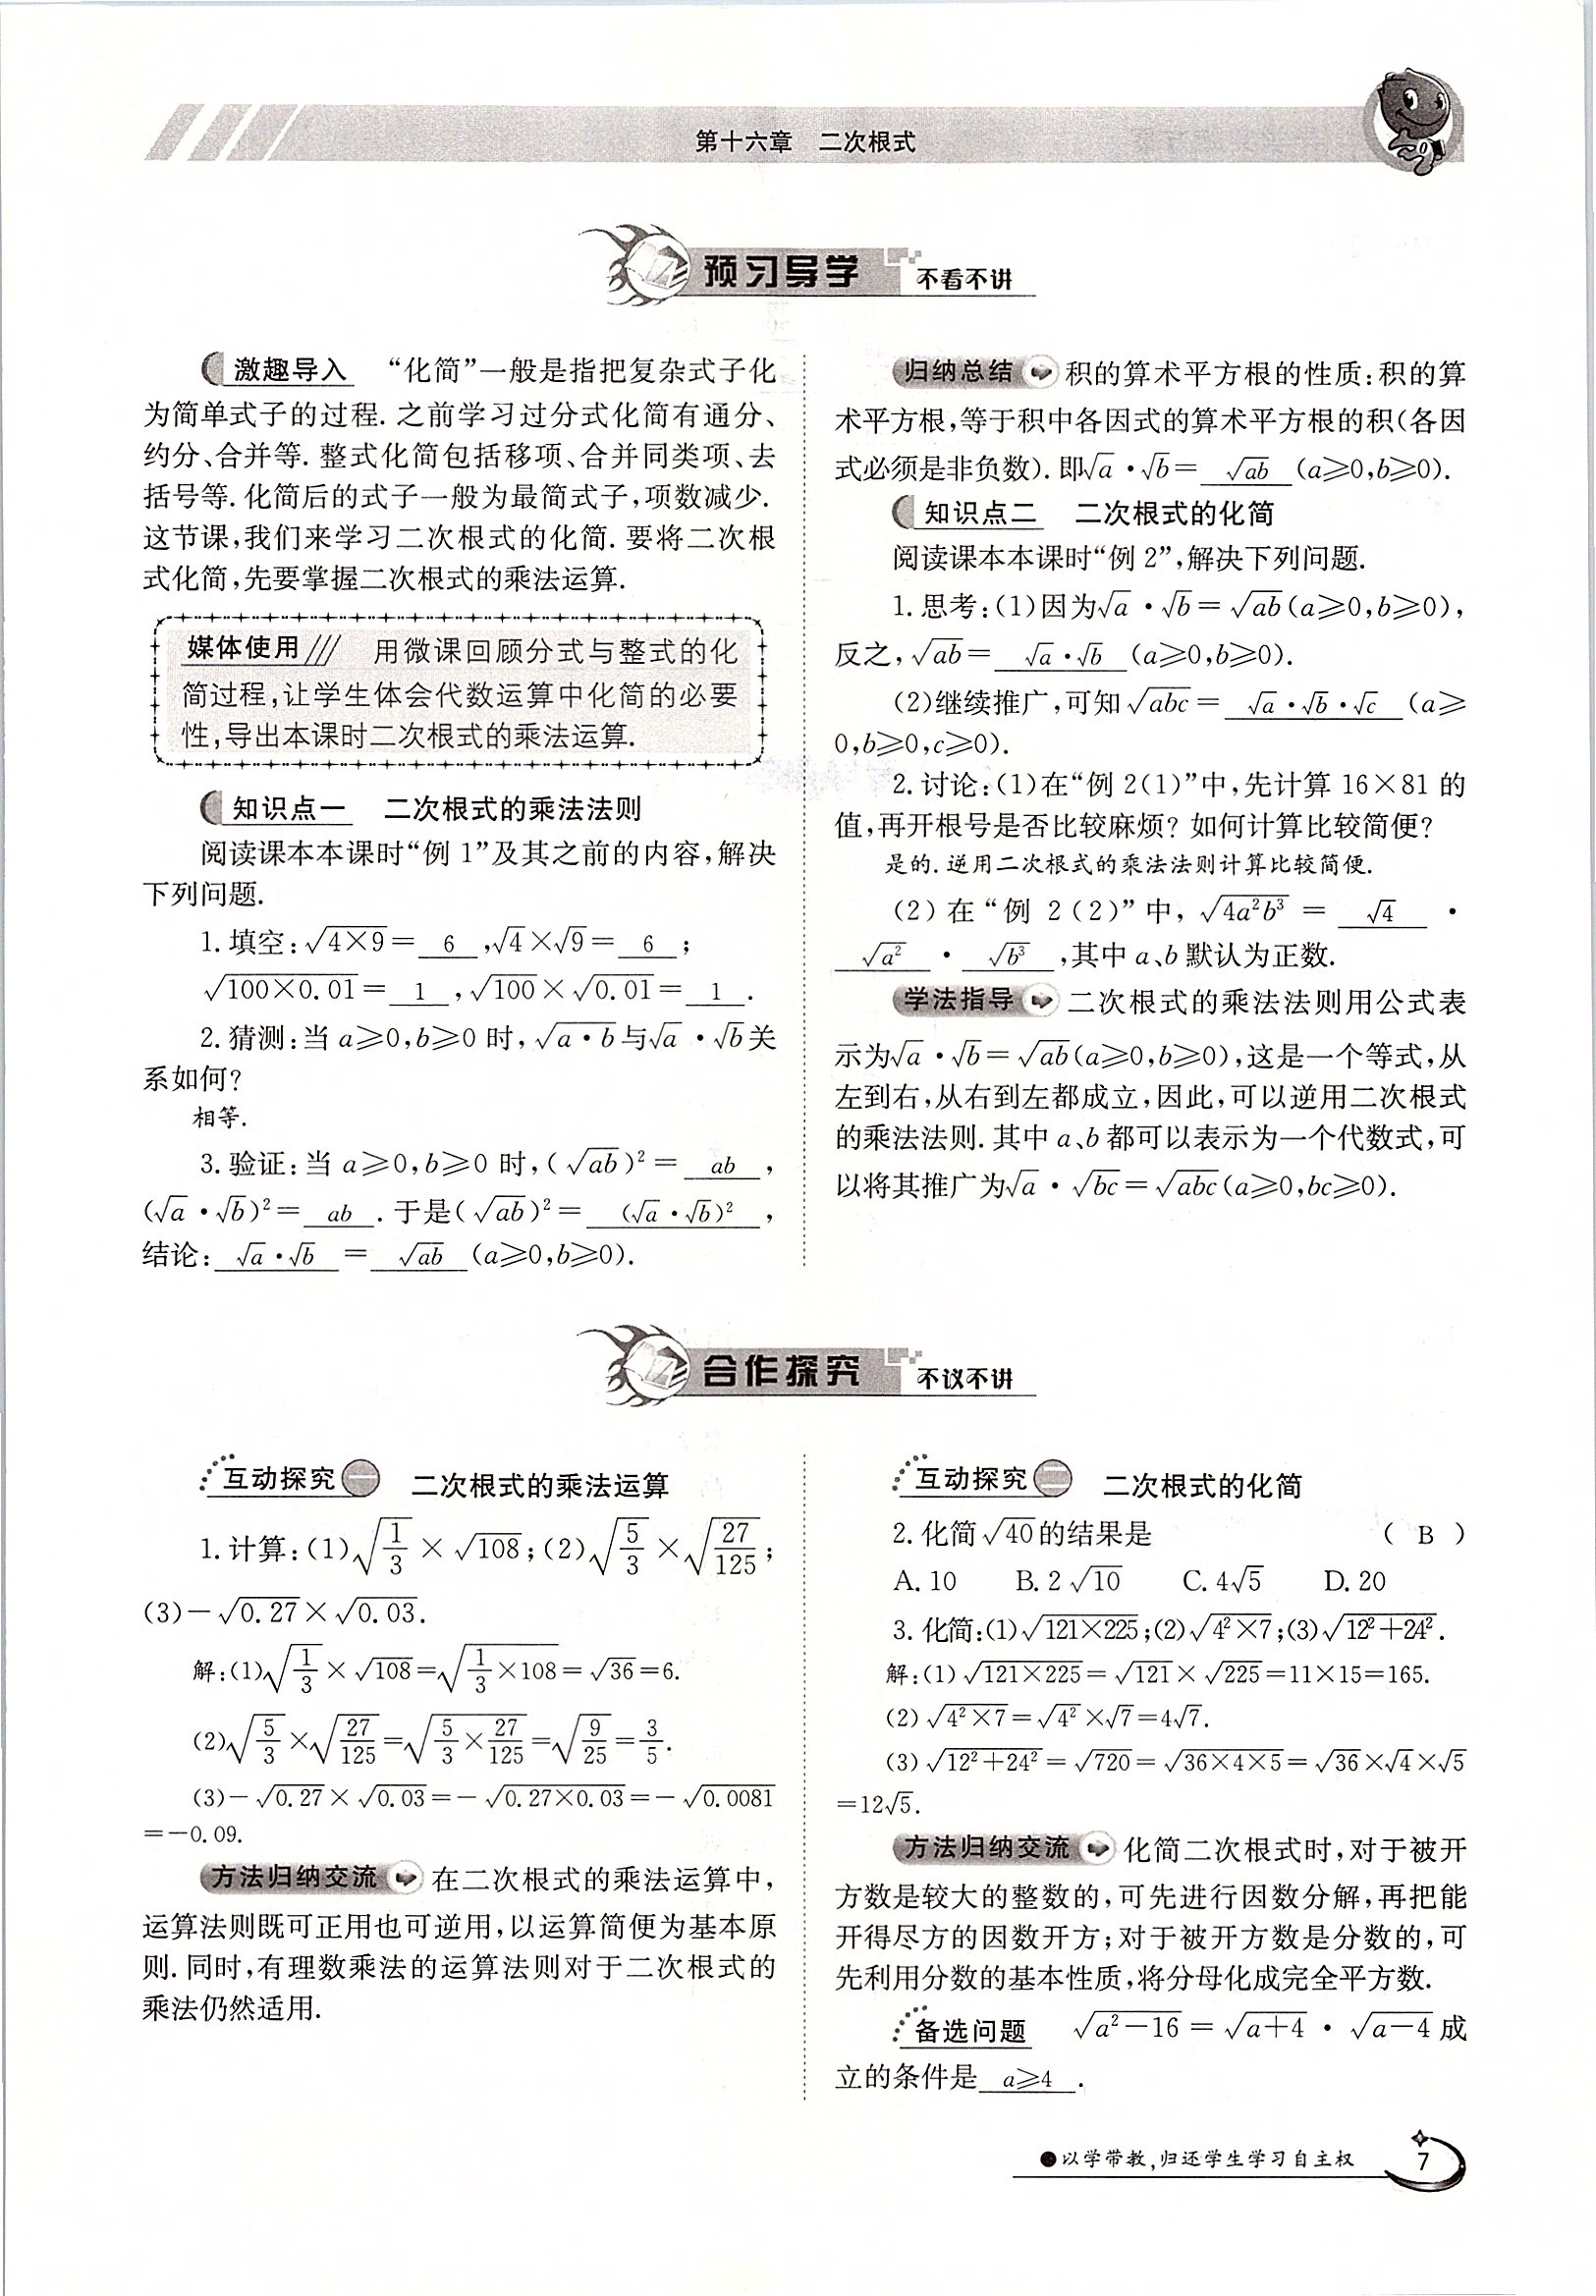 第十六章 二次根式
预习导学 不看不讲
激趣导入 “化简”一般是指把复杂式子化
为简单式子的过程. 之前学习过分式化简有通分、
约分、合并等. 整式化简包括移项、合并同类项、去
括号等. 化简后的式子一般为最简式子,项数减少.
这节课,我们来学习二次根式的化简. 要将二次根
式化简,先要掌握二次根式的乘法运算.
媒体使用 用微课回顾分式与整式的化
简过程,让学生体会代数运算中化简的必要
性,导出本课时二次根式的乘法运算.
知识点一 二次根式的乘法法则
阅读课本本课时“例 1”及其之前的内容,解决
下列问题.
1. 填空:√(4×9)= 6 ,√4×√9= 6 ;
√(100×0.01)= 1 ,√100×√0.01= 1 .
2. 猜测:当 a≥0,b≥0 时,√(a·b)与√a·√b关
系如何?
相等.
3. 验证:当 a≥0,b≥0 时,(√(ab))²= ab ,
(√a·√b)²= ab . 于是(√(ab))²= (√a·√b)² ,
结论: √a·√b = √(ab) (a≥0,b≥0).
归纳总结 积的算术平方根的性质:积的算
术平方根,等于积中各因式的算术平方根的积(各因
式必须是非负数). 即√a·√b= √(ab) (a≥0,b≥0).
知识点二 二次根式的化简
阅读课本本课时“例 2”,解决下列问题.
1. 思考:(1)因为√a·√b=√(ab)(a≥0,b≥0),
反之,√(ab)= √a·√b (a≥0,b≥0).
(2)继续推广,可知√(abc)= √a·√b·√c (a≥
0,b≥0,c≥0).
2. 讨论:(1)在“例 2(1)”中,先计算 16×81 的
值,再开根号是否比较麻烦? 如何计算比较简便?
是的. 逆用二次根式的乘法法则计算比较简便.
(2)在“例 2(2)”中,√(4a²b³)= √4 ·
√(a²) · √(b³) ,其中 a、b 默认为正数.
学法指导 二次根式的乘法法则用公式表
示为√a·√b=√(ab)(a≥0,b≥0),这是一个等式,从
左到右,从右到左都成立,因此,可以逆用二次根式
的乘法法则. 其中 a、b 都可以表示为一个代数式,可
以将其推广为√a·√(bc)=√(abc)(a≥0,bc≥0).
合作探究 不议不讲
互动探究一 二次根式的乘法运算
1. 计算:(1)√(1/3)×√108;(2)√(5/3)×√(27/125);
(3)-√0.27×√0.03.
解:(1)√(1/3)×√108=√(1/3×108)=√36=6.
(2)√(5/3)×√(27/125)=√(5/3×27/125)=√(9/25)=3/5.
(3)-√0.27×√0.03=-√(0.27×0.03)=-√0.0081
=-0.09.
方法归纳交流 在二次根式的乘法运算中,
运算法则既可正用也可逆用,以运算简便为基本原
则. 同时,有理数乘法的运算法则对于二次根式的
乘法仍然适用.
互动探究二 二次根式的化简
2. 化简√40的结果是 ( B )
A. 10 B. 2√10 C. 4√5 D. 20
3. 化简:(1)√(121×225);(2)√(4²×7);(3)√(12²+24²).
解:(1)√(121×225)=√121×√225=11×15=165.
(2)√(4²×7)=√(4²)×√7=4√7.
(3)√(12²+24²)=√720=√(36×4×5)=√36×√4×√5
=12√5.
方法归纳交流 化简二次根式时,对于被开
方数是较大的整数的,可先进行因数分解,再把能
开得尽方的因数开方;对于被开方数是分数的,可
先利用分数的基本性质,将分母化成完全平方数.
备选问题 √(a²-16)=√(a+4)·√(a-4)成
立的条件是 a≥4 .
●以学带教,归还学生学习自主权
7